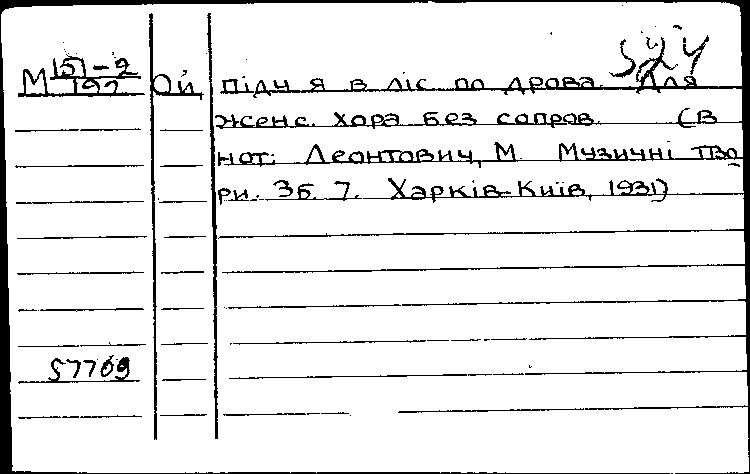 М 151-2
192
Ой, піду я в ліс по дрова. Для
женс. хора без сопров. (В
нот: Леонтович, М. Музичні тво
ри. Зб. 7. Харків-Київ, 1931)
57709